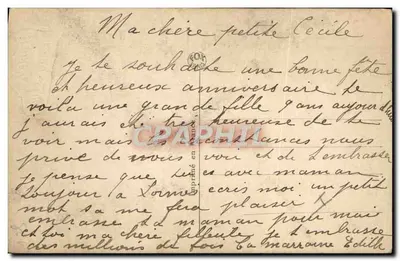 Ma chère petite Cécile
Je te souhaite une bonne fête
et heureux anniversaire te
voila une grande fille 9 ans aujourd'hui
j'aurais été très heureuse de te
voir mais les nous
prive de nous voir et de t'embrasser
je pense que tu es avec maman
toujour à écris moi un petit
mot sa me fera plaisir
embrasse ta maman pour moi
et toi ma chère filleule je t'embrasse
des millions de fois ta marraine Edith
CARTHAPHILIE
Imprimé en